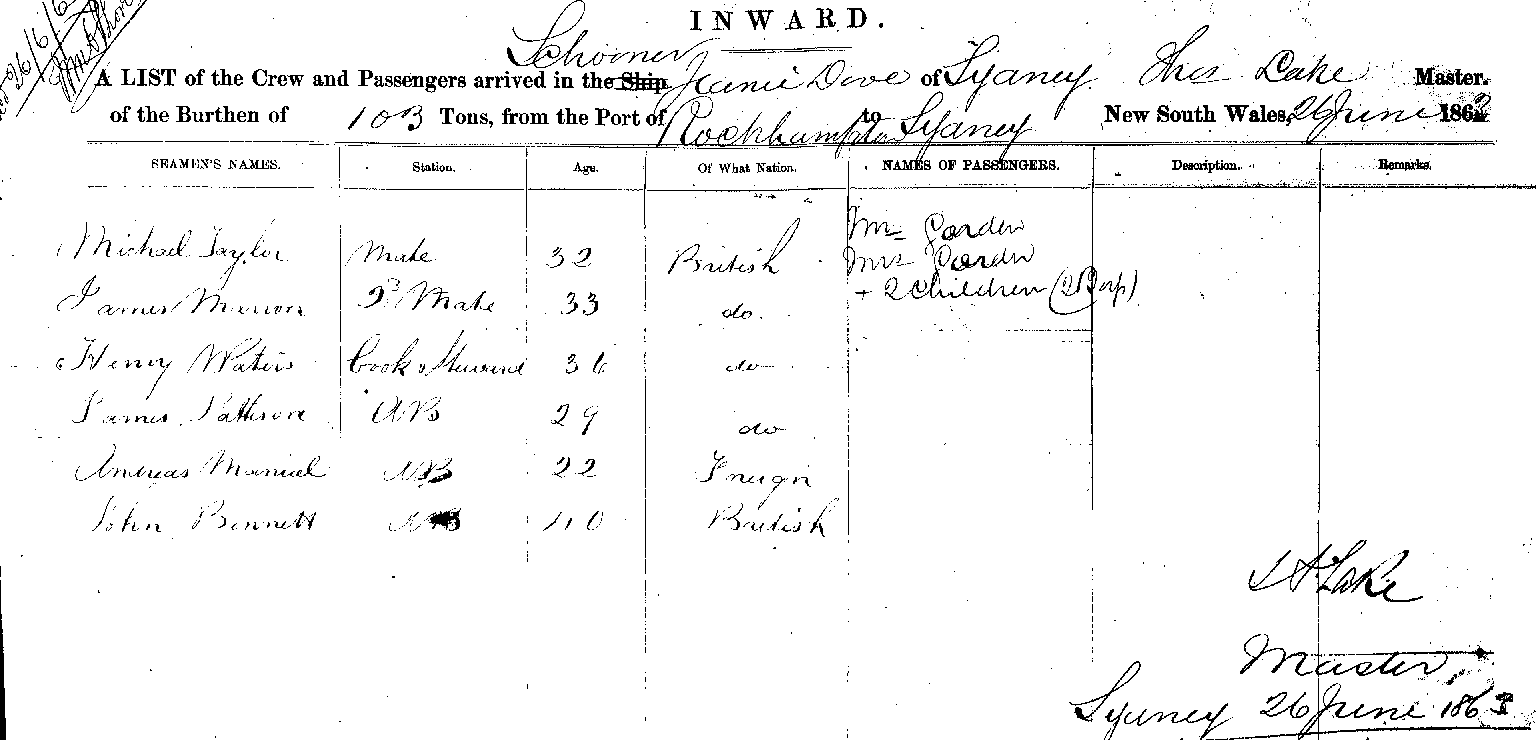 26/6/6
INWARD.
Schooner
A LIST of the Crew and Passengers arrived in the Ship Jeanie Dove of Sydney Thos Lake Master.
of the Burthen of 103 Tons, from the Port of Rockhampton to Sydney New South Wales, 26 June 1863
SEAMEN'S NAMES. Station. Age. Of What Nation. NAMES OF PASSENGERS. Description. Remarks.
Mr Gordon
Michael Taylor Mate 32 British Mrs Gordon
James 2d Mate 33 do + 2 children
Henry Waters Cook & Steward 36 do
James Pattison AB 29 do
Andreas Manual AB 22 Foreign
John Bennett AB 40 British
Lake
Master
Sydney 26 June 1863